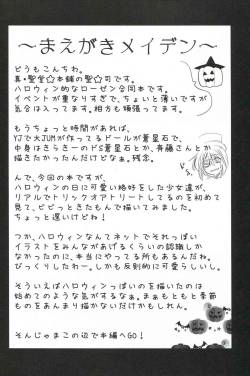 ～まえがきメイデン～
どうもこんちわ。
真・聖堂☆本舗の聖☆司です。
ハロウィン的なローゼン合同本です。
イベントが重なりすぎで、ちょいと薄いですが
気合は入ってます。相方も頑張ってます。
もうちょっと時間があれば、
YJで大JUMが作ってるドールが蒼星石で、
中身はきらきーのドS蒼星石とか、斉藤さんとか
描きたかったんだけどなぁ。残念。
んで、今回の本ですが、
ハロウィンの日に可愛い格好をした少女達が、
リアルでトリックオアトリートしてるのを初めて
見て、ビビっときたもんで描いてみました。
ちょっと遅いけどね！
つか、ハロウィンなんてネットでそれっぽい
イラストをみんながあげるくらいの認識しか
なかったのに、本当にやってる所もあるんだね。
びっくりしたわー。しかも反則的に可愛らしいし。
そういえばハロウィンっぽいものを描いたのは
始めてのような気がするなぁ。まぁもともと季節
ものをあんまり描かないだけかもしれん。
そんじゃまこの辺で本編へGO！